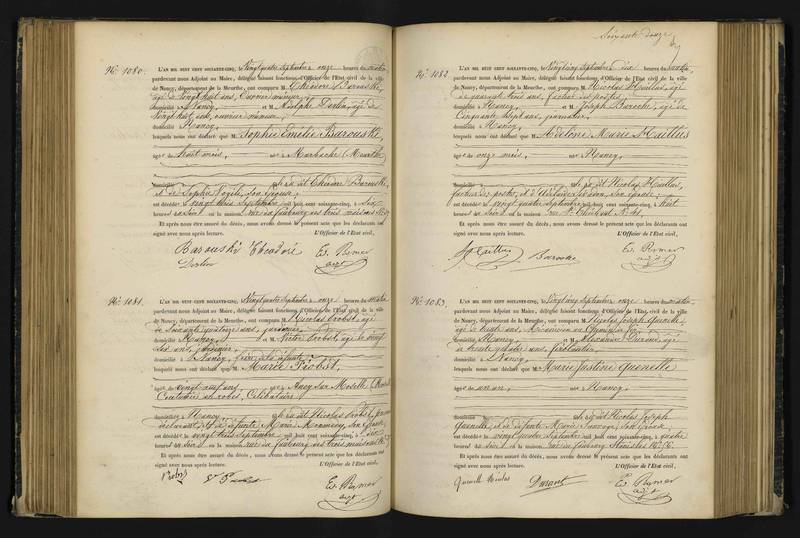 N° 1080.
L'AN MIL HUIT CENT SOIXANTE-CINQ, le Vingt quatre Septembre à onze heures du matin
pardevant nous Adjoint au Maire, délégué faisant fonctions d'Officier de l'Etat civil de la ville
de Nancy, département de la Meurthe, ont comparu M. Théodore Barouski,
âgé de Vingt huit ans, Ouvrier mineur,
domicilié à Nancy, et M. Adolphe Dorlin, âgé de
Vingt huit ans, ouvrier mineur,
domicilié à Nancy,
lesquels nous ont déclaré que M. Sophie Emélie Barouski
âgée de huit mois, née à Marbache (Meurthe)
domiciliée fille de dit Théodore Barouski,
et de Sophie son épouse,
est décédée le vingt trois Septembre mil huit cent soixante-cinq, à six
heures du Soir en la maison rue du faubourg des trois maisons N°
Et après nous être assuré du décès, nous avons dressé le présent acte que les déclarants ont
signé avec nous après lecture. L'Officier de l'Etat civil,
Barouski Théodore
Dorlin
Ev. Rymer
adjt
N° 1081.
L'AN MIL HUIT CENT SOIXANTE-CINQ, le Vingt quatre Septembre à onze heures du matin
pardevant nous Adjoint au Maire, délégué faisant fonctions d'Officier de l'Etat civil de la ville
de Nancy, département de la Meurthe, ont comparu M. Nicolas Probst, âgé
de Soixante quatorze ans, jardinier
domicilié à Nancy, et M. Victor Probst, âgé de vingt
six ans, jardinier,
domicilié à Nancy, frère de la défunte
lesquels nous ont déclaré que M. Marie Probst,
âgée de vingt neuf ans, née à Ancy sur Moselle (Moselle)
Couturière en robes, Célibataire
domiciliée à Nancy fille de dit Nicolas Probst,
et de défunte Marie son épouse
est décédée le vingt trois Septembre mil huit cent soixante-cinq, à
heures du Soir en la maison rue du faubourg des trois maisons N°
Et après nous être assuré du décès, nous avons dressé le présent acte que les déclarants ont
signé avec nous après lecture. L'Officier de l'Etat civil,
Probst
Ev. Rymer
adjt
Soixante douze
N° 1082
L'AN MIL HUIT CENT SOIXANTE-CINQ, le Vingt cinq Septembre à dix heures du matin,
pardevant nous Adjoint au Maire, délégué faisant fonctions d'Officier de l'Etat civil de la ville
de Nancy, département de la Meurthe, ont comparu M. Nicolas Maillus, âgé
de quarante trois ans, facteur des postes,
domicilié à Nancy, et M. Joseph Baroche, âgé de
Cinquante sept ans, journalier,
domicilié à Nancy,
lesquels nous ont déclaré que M. Adeline Marie Maillus
âgée de onze mois, née à Nancy,
domiciliée fille de dit Nicolas Maillus,
facteur des postes, et d'Adélaïde son épouse;
est décédée le vingt quatre Septembre mil huit cent soixante-cinq, à huit
heures du Soir en la maison rue St N° 41
Et après nous être assuré du décès, nous avons dressé le présent acte que les déclarants ont
signé avec nous après lecture. L'Officier de l'Etat civil,
Baroche
Ev. Rymer
adjt
N° 1083.
L'AN MIL HUIT CENT SOIXANTE-CINQ, le Vingt cinq Septembre à onze heures du matin
pardevant nous Adjoint au Maire, délégué faisant fonctions d'Officier de l'Etat civil de la ville
de Nancy, département de la Meurthe, ont comparu M. Nicolas Joseph Quenelle
âgé de trente ans, Mécanicien au Chemin de fer,
domicilié à Nancy, et M. Alexandre Durand, âgé
de trente quatre ans, ferblantier,
domicilié à Nancy,
lesquels nous ont déclaré que M. Marie Justine Quenelle
âgée de un an, née à Nancy,
domiciliée fille de dit Nicolas Joseph
Quenelle, et de défunte Marie Sauvage, son épouse,
est décédée le vingt quatre Septembre mil huit cent soixante-cinq, à quatre
heures du Soir en la maison rue du faubourg Stanislas N°
Et après nous être assuré du décès, nous avons dressé le présent acte que les déclarants ont
signé avec nous après lecture. L'Officier de l'Etat civil,
Quenelle Nicolas
Durand
Ev. Rymer
adjt